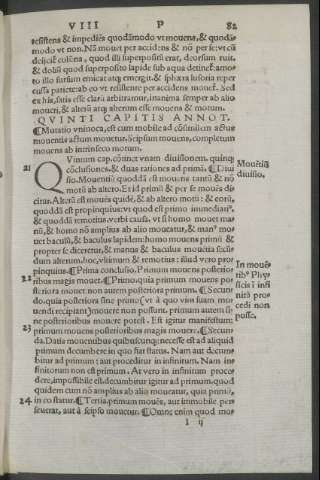 VIII P 82
resistens & impediēs quodāmodo vt mouens, & quodā
modo vt non. Nā mouet per accidens & nō per se: vt cū
deijcit colūna, quod illi superpositū erat, deorsum ruit.
& doliū quod superposito lapide sub aqua detinet: amo
to illo sursum emicat atq; emergit. & sphæra lusoria reper
cussa pariete: ab eo vt resistente per accidens mouet. Sed
ex his, satis esse clarū arbitramur, inanima semper ab alio
moueri, & alterū atq; alterum esse mouens & motum.
QVINTI CAPITIS ANNOT.
¶Mutatio vniuoca, est cum mobile ad cōsimilem actus
mouentis actum mouetur. Seipsum mouens, completum
mouens ab intrinseco motum.
21 QVintum cap. cōtinet vnam diuisionem. quinq;
cōclusiones, & duas rationes ad primā. ¶Diui
sio. Mouentiū quoddā est mouens tantū & nō
motū ab altero. Et id primū & per se mouēs di
citur. Alterū est mouēs quidē, & ab altero motū: & eorū,
quoddā est propinquius: vt quod est primo immediatū.
& quoddā remotius: verbi causa. vt si homo mouet ma
nū, & homo nō amplius ab alio moueatur, & manus mo
uet baculū, & baculus lapidem: homo mouens primū &
propter se diceretur, & manus & baculus mouētia secū
dum alterum. hoc, vltimum & remotius: illud vero pro
pinquius. ¶Prima conclusio. Primum mouens posterio
22 ribus magis mouet. ¶Primo. quia primum mouens po
steriora mouet non autem posteriora primum. ¶Secun
do. quia posteriora sine primo (vt à quo vim suam mo
uendi recipiant) mouere non possunt. primum autem si
ne posterioribus mouere potest. Est igitur manifestum:
23 primum mouens posterioribus magis mouere. ¶Secun
da. Datis mouentibus quibuscunq; necesse est ad aliquid
primum decumbere in quo fiat status. Nam aut decum
bitur ad primum: aut proceditur in infinitum. Nam in
finitorum non est primum. At vero in infinitum proce
dere, impossibile est. decumbitur igitur ad primum. quod
quidem cum nō amplius ab alio moueatur, quia primū,
24 in eo statur. ¶Tertia. primum mouēs, aut immobile per
seuerat, aut à seipso mouetur. ¶Omne enim quod mo
Mouētiū
diuisio.
In mouē
tibꝰ Phy
sicis ī infi
nitū pro
cedi non
posse.
l ij